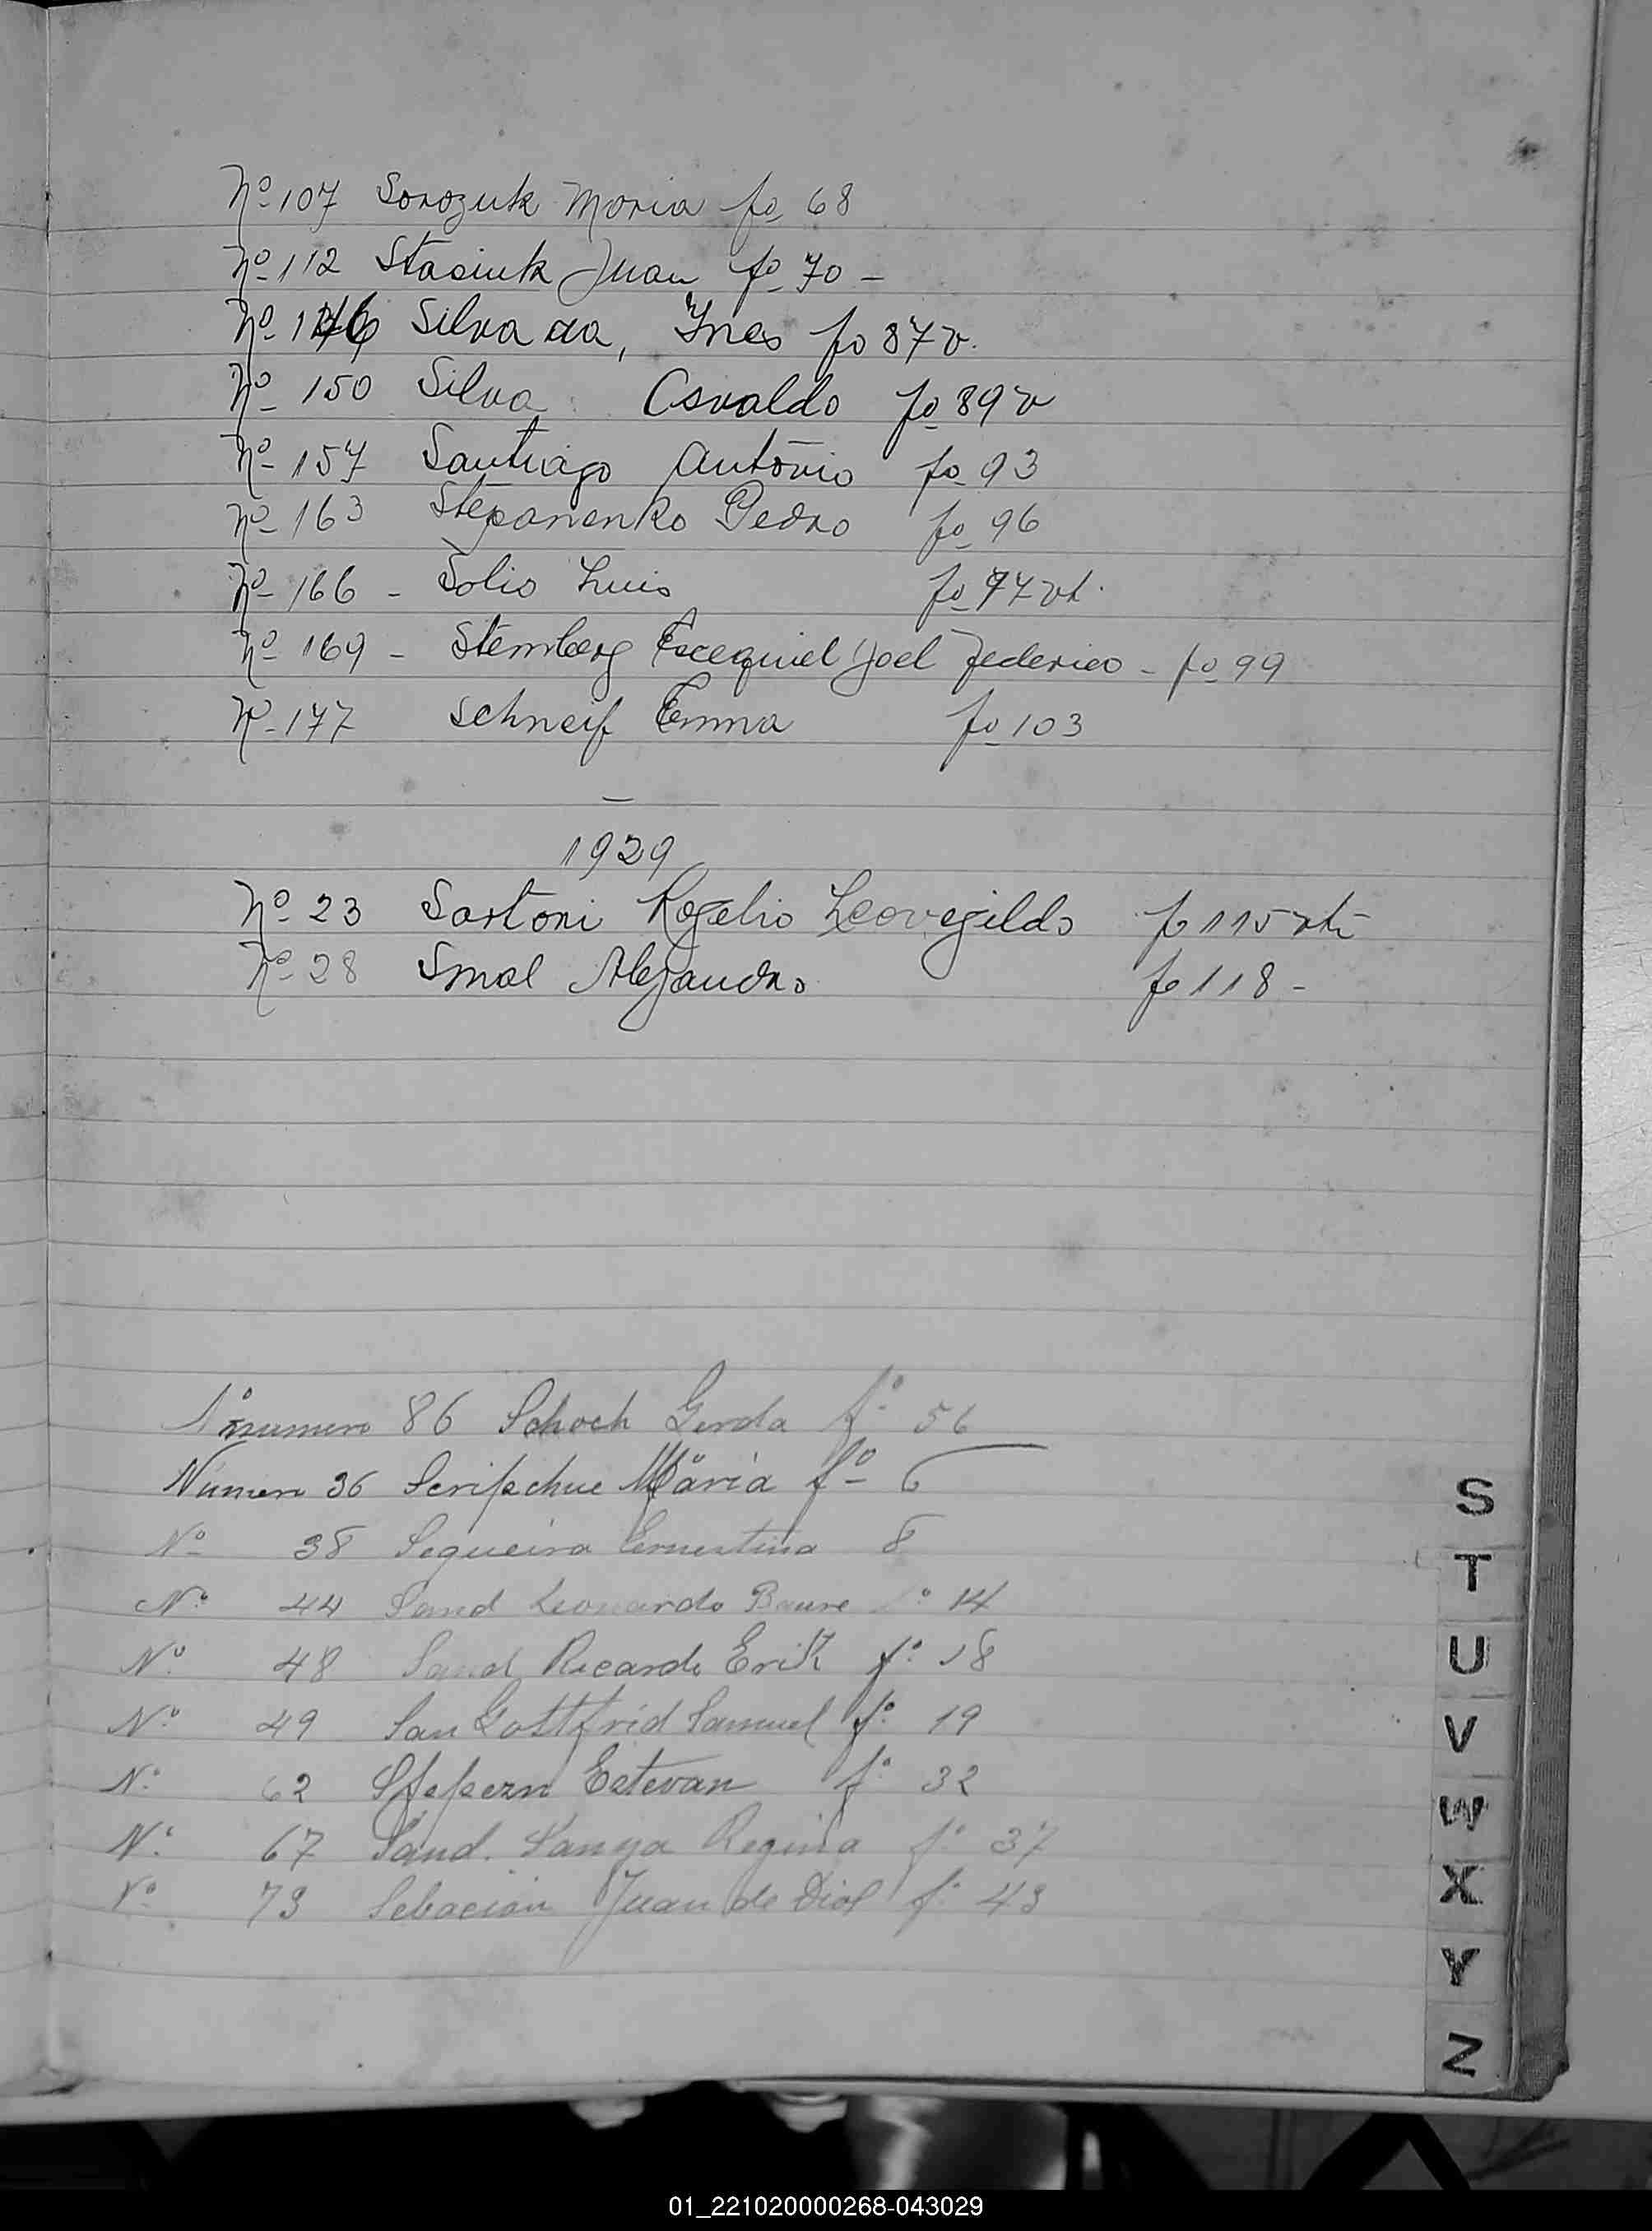 Nº 107 Sorozuk Maria fo 68
Nº 112 Stasiuk Juan fo 70 -
Nº 146 Silva da, Ines fo 87 v.
Nº 150 Silva Osvaldo fo 89 v
Nº 157 Santiago Antonio fo 93
Nº 163 Stepanenko Pedro fo 96
Nº 166 - Solis Luis fo 97 vt.
Nº 169 - Sternberg Escequiel Joel Federico - fo 99
Nº 177 Schneif Emma fo 103
1929
Nº 23 Sartori Rogelio Leovegildo fo 115 vta
Nº 28 Smal Alejandro fo 118 -
numero 86 Schoch Gerda fº 56
Numero 36 Seripchuc Maria fº 6
Nº 38 Sequeira Ernestina 8
Nº 44 Sand Leonardo fº 14
Nº 48 Sand Ricardo Erik fº 18
Nº 49 San Gottfrid Samuel fº 19
Nº 62 Estevan fº 32
Nº 67 Sand. Sanya Regina fº 37
Nº 73 Sebacian Juan de Dios fº 43
S
T
U
V
W
X
Y
Z
01_221020000268-043029